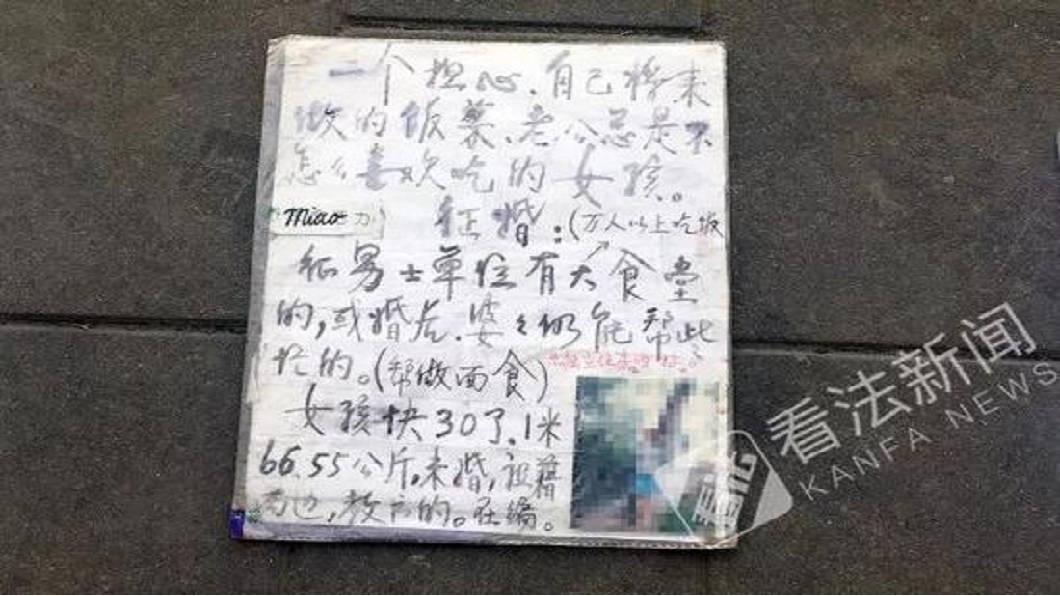 一个担心.自己将来
做的饭菜、老公总是不
怎么喜欢吃的女孩。
Miao 力
征婚:(万人以上吃饭
征男士单位有大食堂
的,或婚后.婆々仍能帮此
忙的。(帮做面食)
女孩快30了.1米
66.55公斤.未婚,祖籍
的。在编。
看法新闻
KANFA NEWS